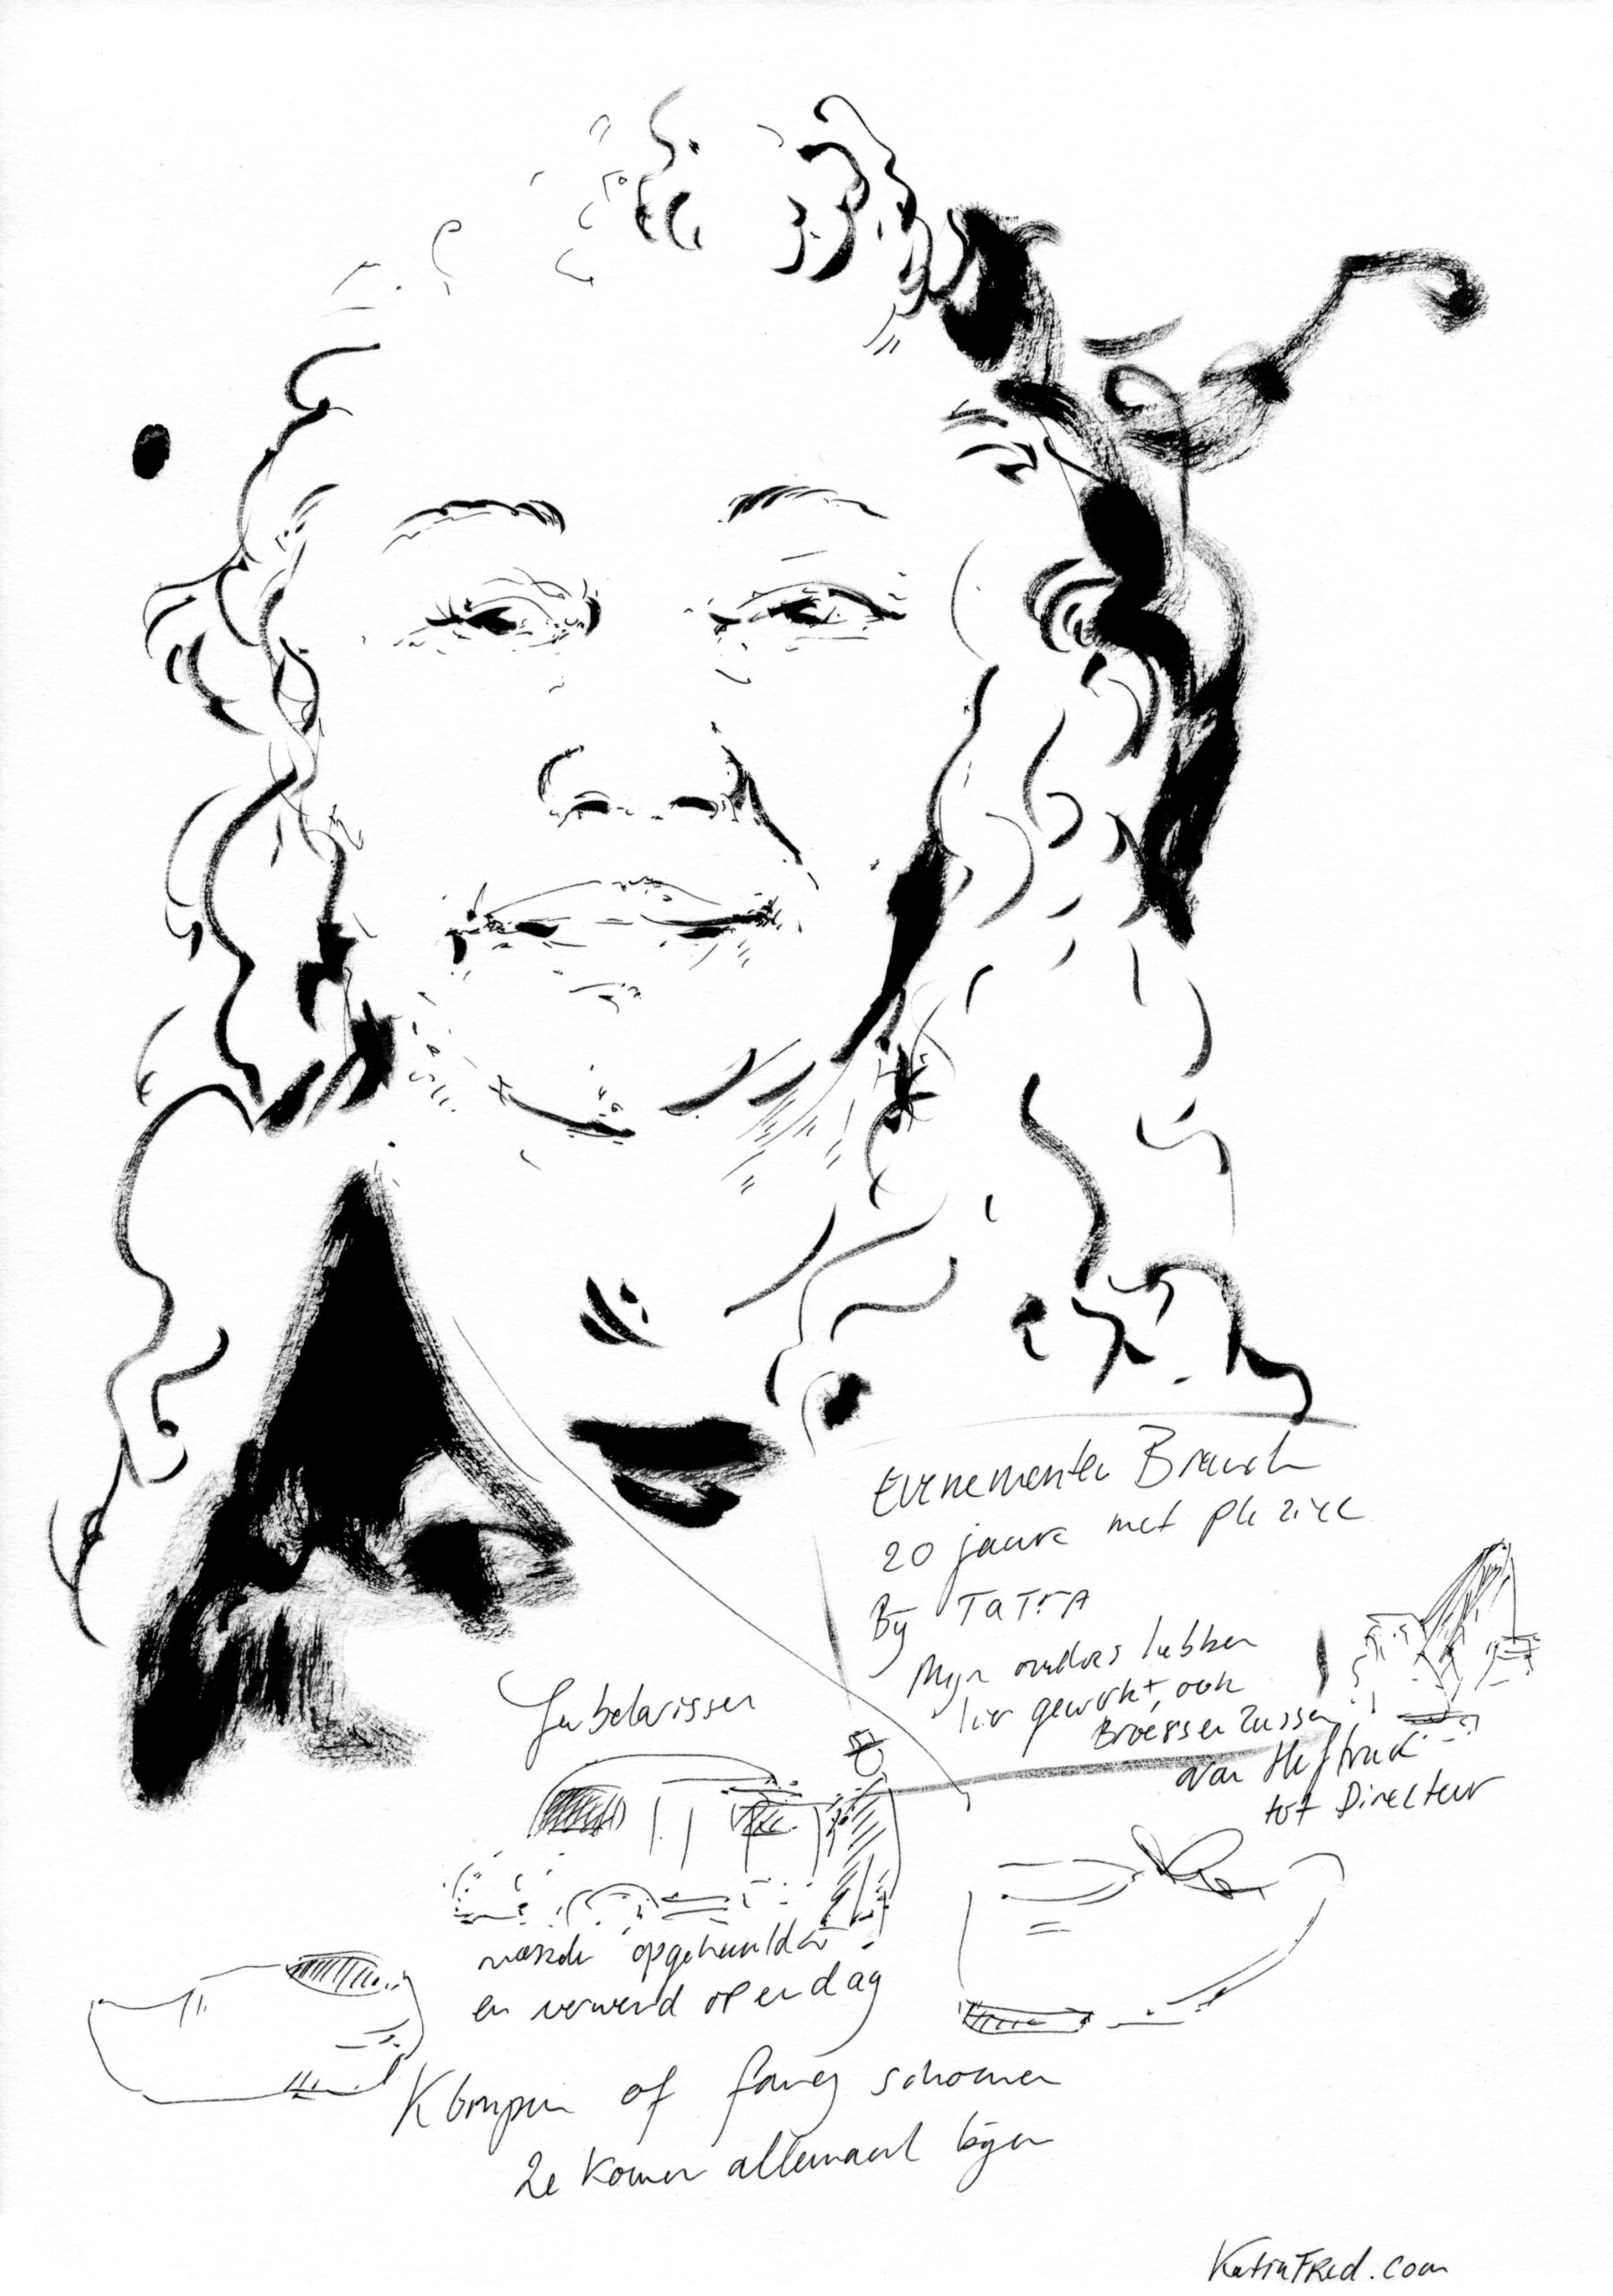 Evenementen Branch
20 jaare met plezier
Bij TaTrA
Mijn ouders hebben
hier gewerkt, ook
Broessen Zussen
van Heftruck
tot Directeur
Jubelarissen
opgehaalde
en verwend op en dag
Klompen of fancy schoenen
Ze komen allemaal bijen
KatinFRed.com